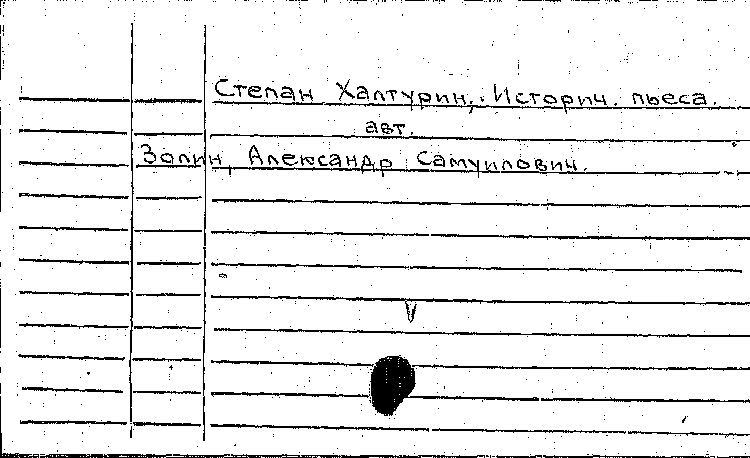 Степан Халтурин, Историч. пьеса.
авт.
Золин, Александр Самуилович.